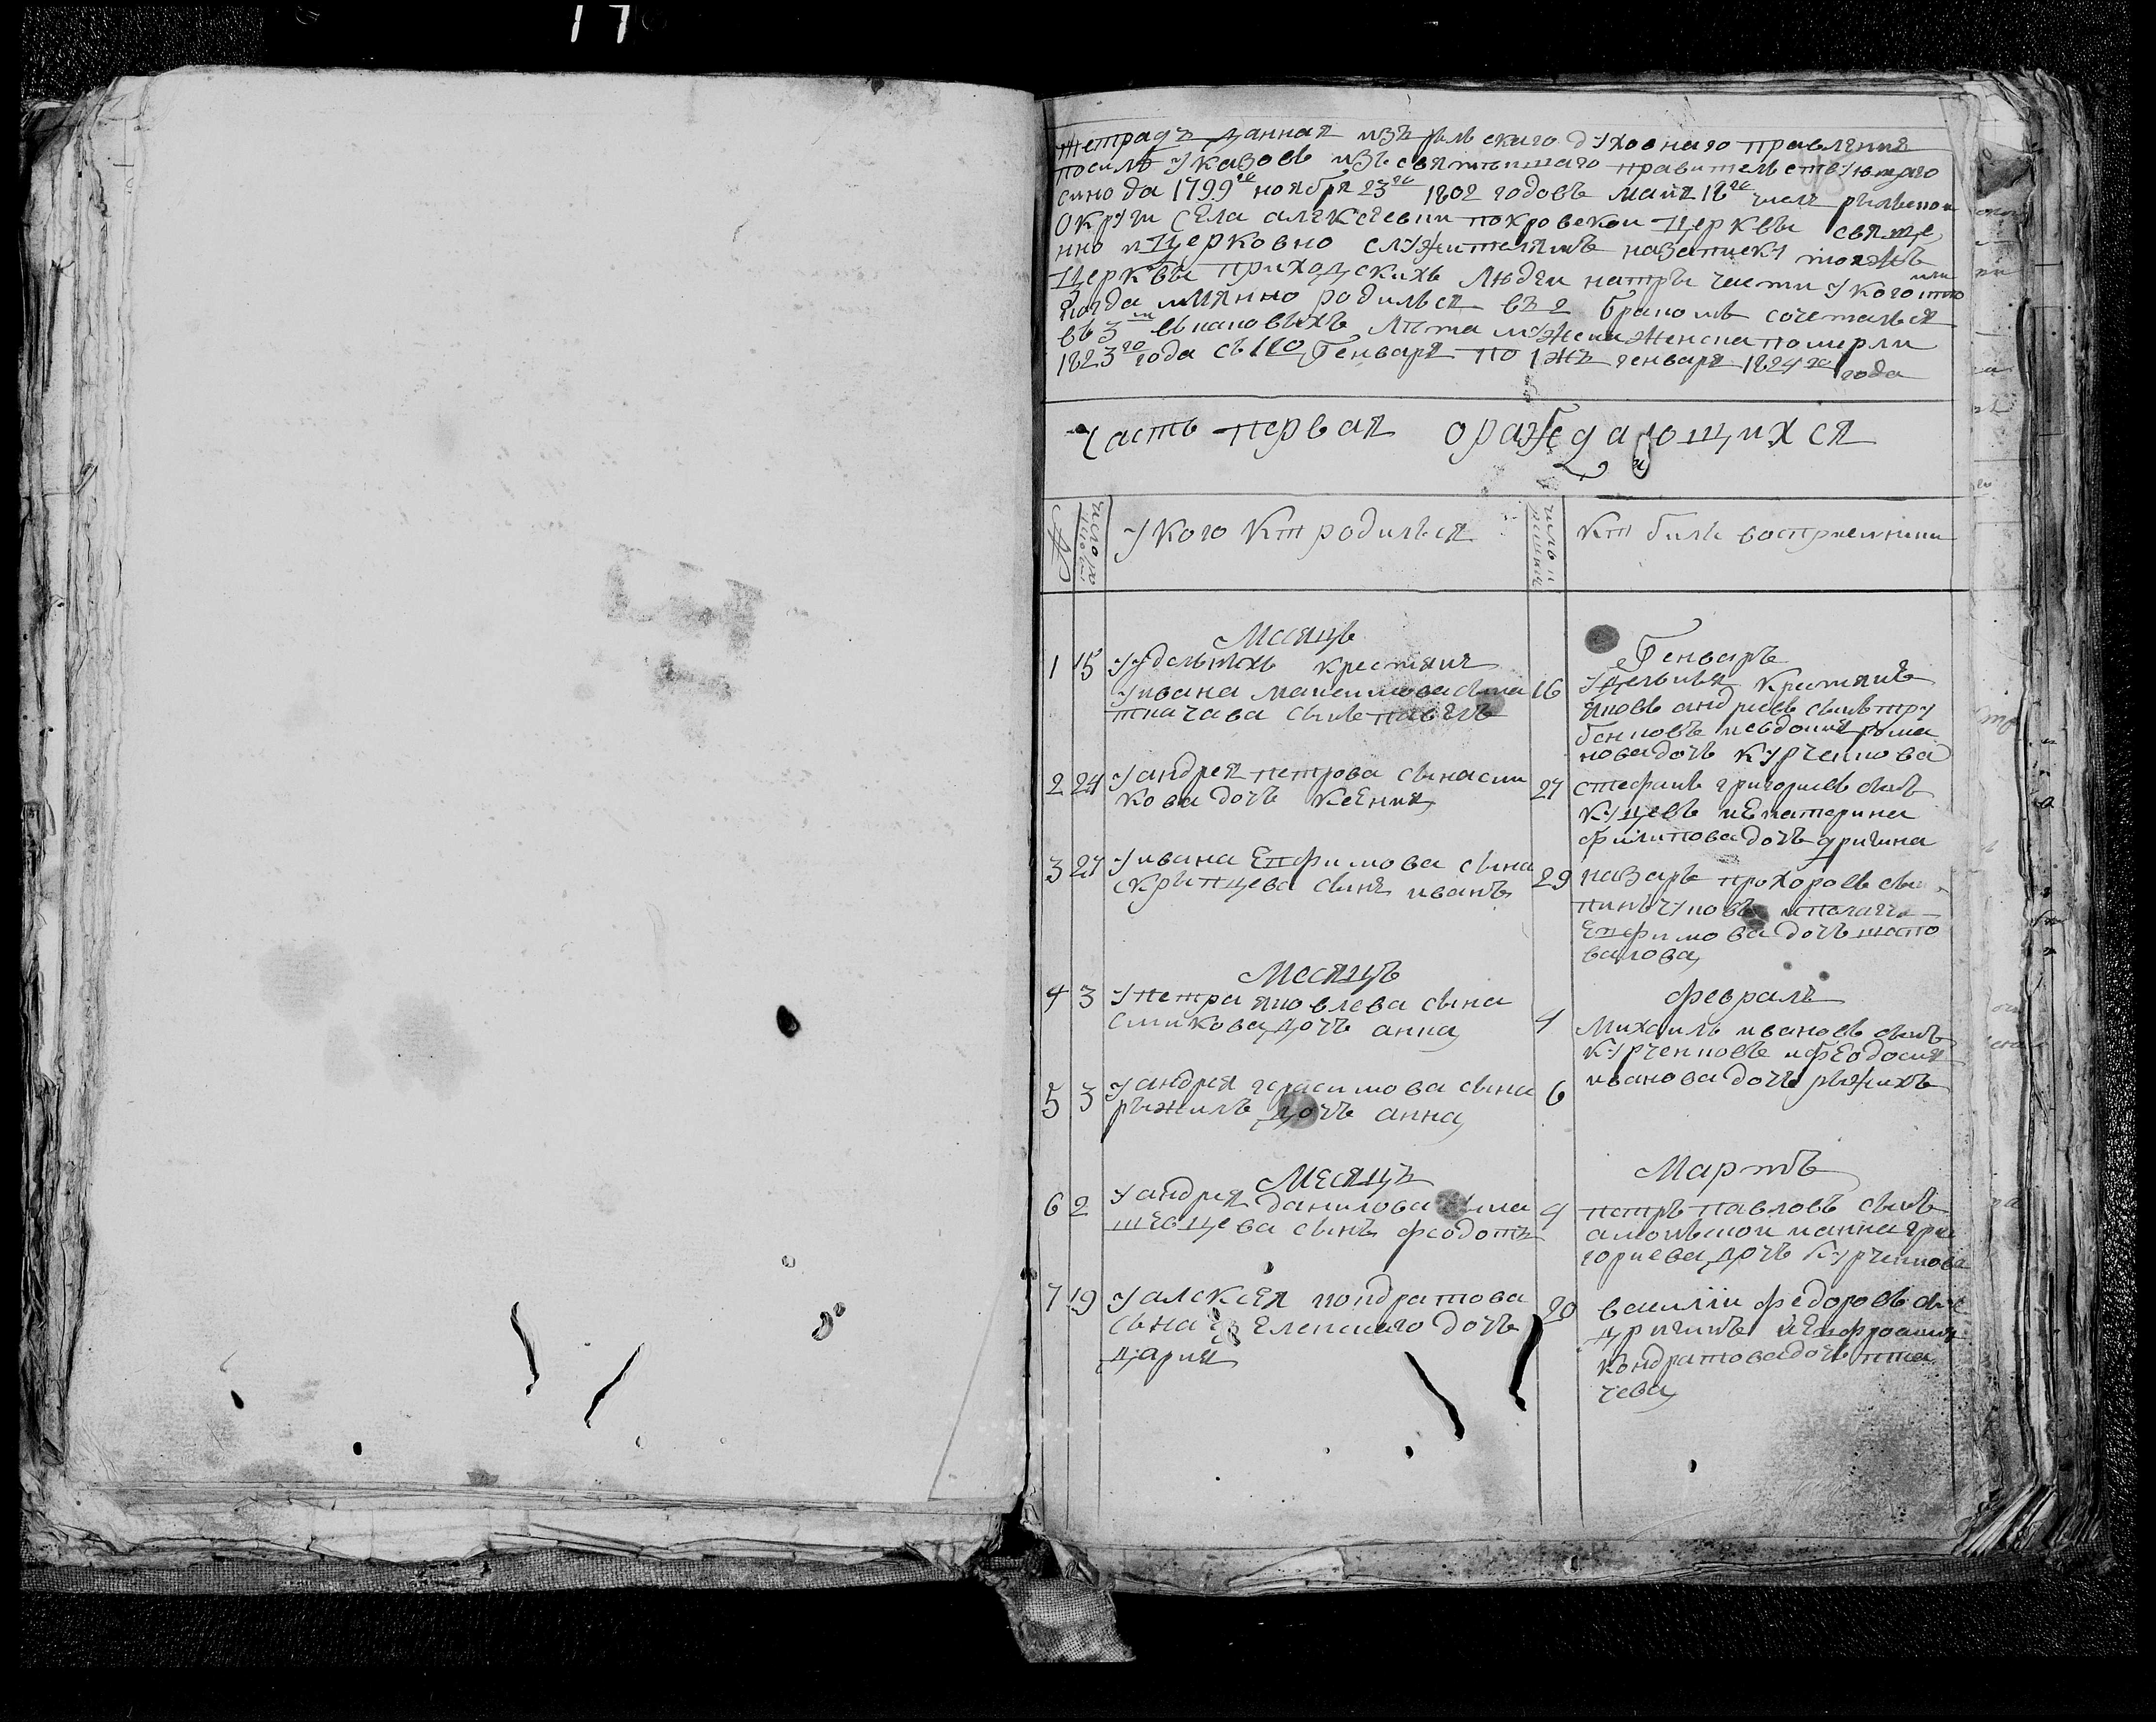 тетрадь данная изъ рыльскаго духовнаго правления
посилѣ Указовъ изъ святѣйшаго правительствующаго
синода 1799го ноября 23го 1802 годовъ майя 18го чисел рыльской
Округи Села алексеевки покровской Церквы свяще
нно и Церковно служителямъ назаписку тояжъ
Церквы приходскихъ людеи натры части Укого кто или
когда имянно родилься въ 2 бракомъ сочеталься
въ 3й вкаковыхъ лѣта мужеска женска померли
1823го года съ 1го Генваря по 1жъ генваря 1824го года
часть первая оражедающихся
№ число рожденій Укого кто родилься число крещения кто были восприемники
Месяцъ Генварь
1 15 Уудельныхъ крестянъ
Уивана максимова сына
ткачава сынъ павелъ
16 Удельныя крестянъ
яковъ андреевъ сынъ тру
бениковъ иевдокия рома
новадочь курчениова
2 24 Уандрея петрова сынасим
кова дочь ксения
27 стефанъ григориевъ сынъ
куцевъ иЕкатерина
филиповадочь дригина
3 27 Уивана Епфимова сына
скрыпцева сынъ иванъ
29 назаръ прохоровъ сынъ
ипелагея
Епфимова дочь шапо
валова
Месяцъ февраль
4 3 Упетра яковлева сына
симкова дочь анна
4 Михаилъ ивановъ сынъ
курчениовъ ифеодосия
ивановадочь рыжихъ
5 3 Уандрея герасимова сына
рыжихъ дочь анна
6
Месяцъ Мартъ
6 2 Уандрея данилова сына
шевцева сынъ феодотъ
4 петръ павловъ сынъ
ианна гри
гориева дочь курчениова
7 19 Уалексея кондратова
сына Зеленскаго дочь
дария
20 василій федоровъ сынъ
дригинъ иЕпфросиния
кондратовадочь тка
чева